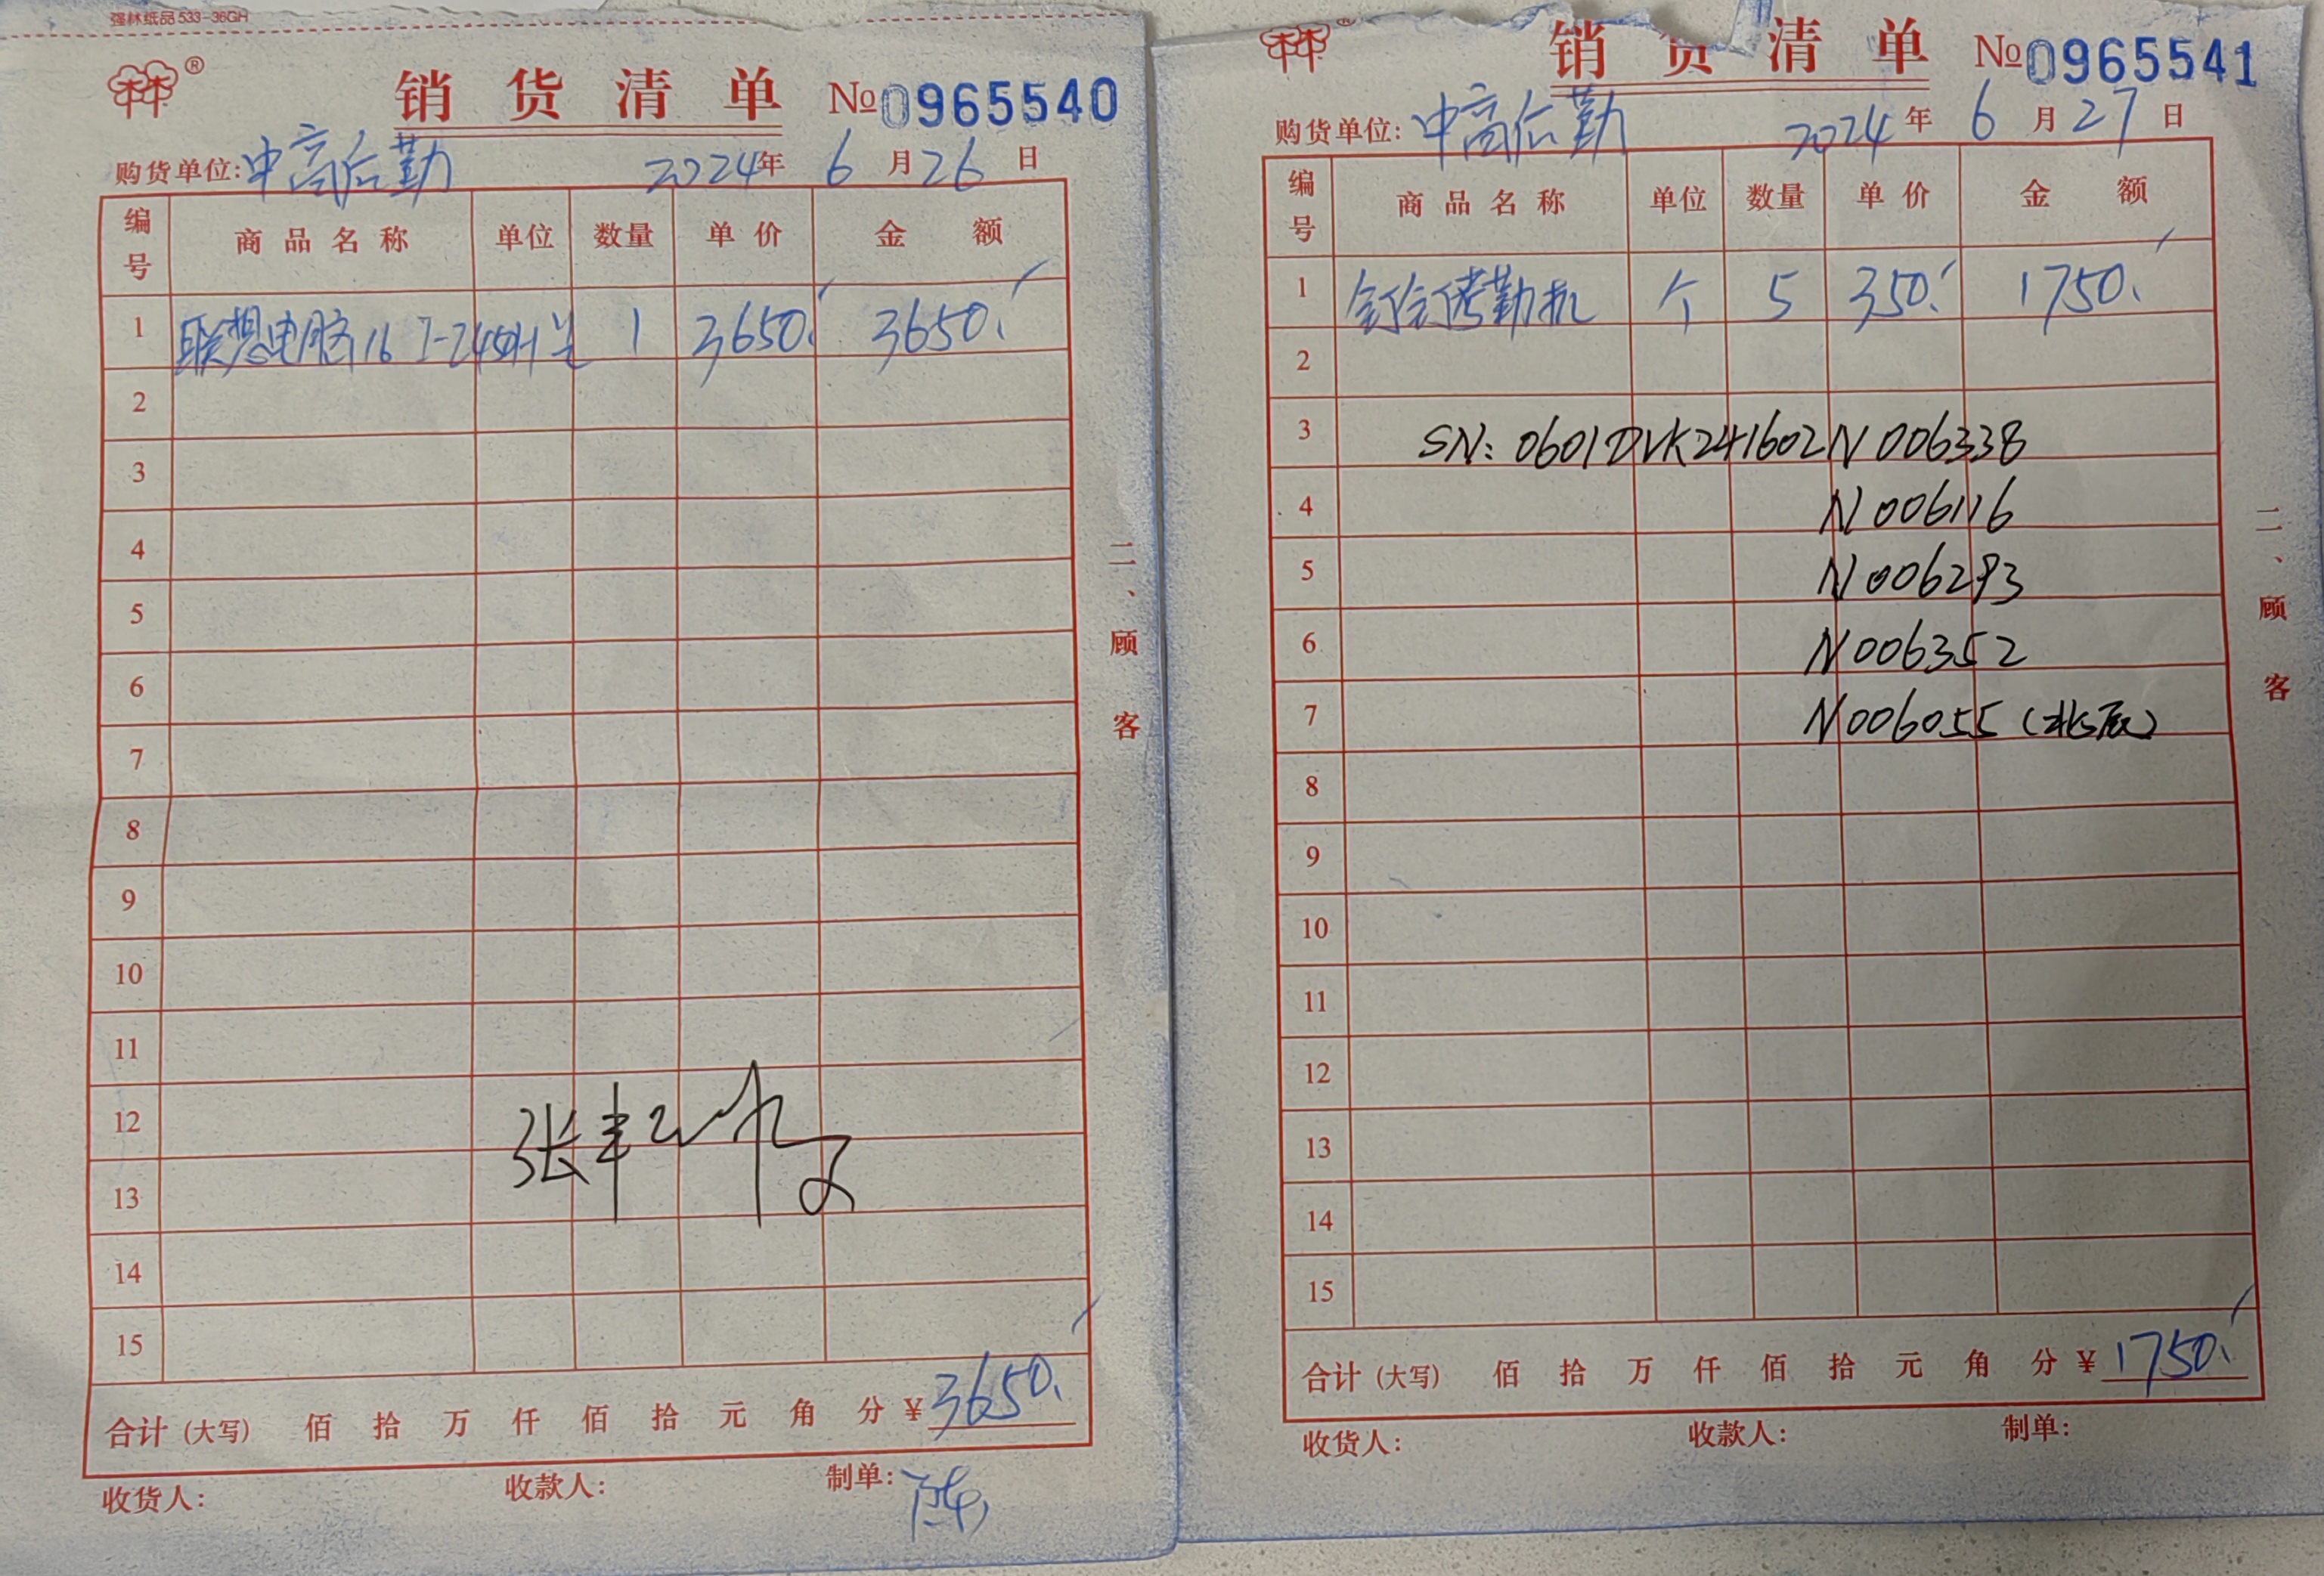 强林纸品 533-36GH
林®
销货清单 №0965540
购货单位:中高后勤 2024年6月26日
编号 商品名称 单位 数量 单价 金额
1 联想电脑16 I-245H 台 1 3650. 3650.
2
3
4
5
6
7
8
9
10
11
12
13
14
15
合计(大写) 佰 拾 万 仟 佰 拾 元 角 分 ¥3650.
收货人: 收款人: 制单:陈
二、顾客
林®
销货清单 №0965541
购货单位:中高后勤 2024年6月27日
编号 商品名称 单位 数量 单价 金额
1 钉钉考勤机 个 5 350. 1750.
2
3 SN:0601DVK241602N006338
4 N006116
5 N006293
6 N006352
7 N006055(北辰)
8
9
10
11
12
13
14
15
合计(大写) 佰 拾 万 仟 佰 拾 元 角 分 ¥1750.
收货人: 收款人: 制单:
二、顾客